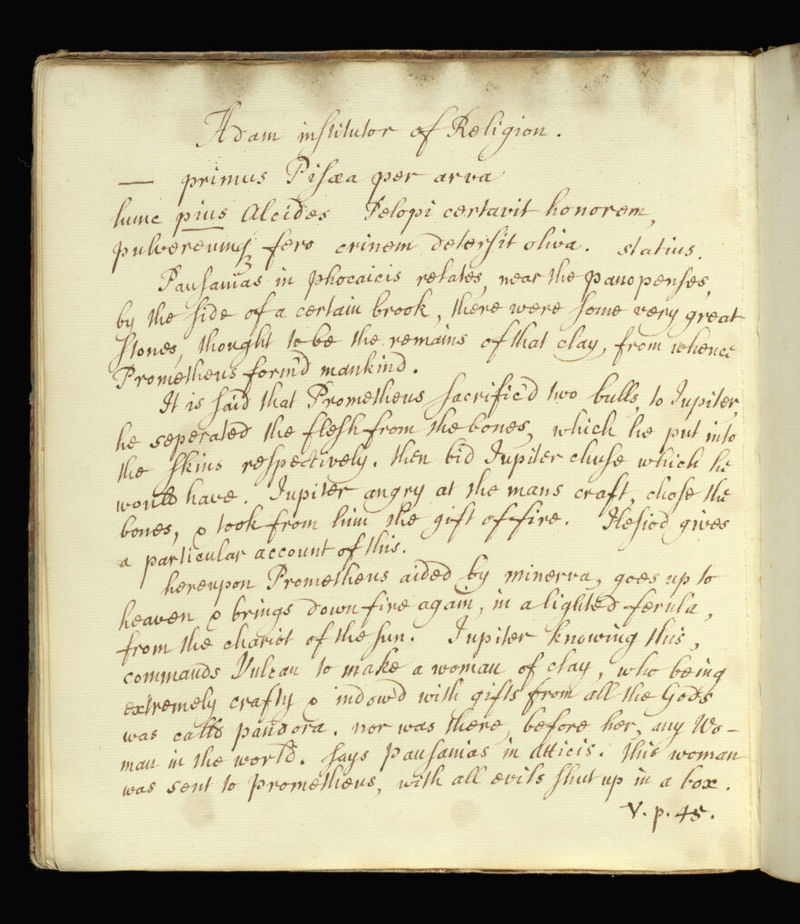 Adam institutor of Religion.
— primus Pisæa per arva
hunc pius Alcides Pelopi certavit honorem,
pulvereumq; fero crinem detersit oliva. statius.
Pausanias in phocaicis relates, near the panopenses,
by the side of a certain brook, there were some very great
stones, thought to be the remains of that clay, from whence
Prometheus form'd mankind.
It is said that Prometheus sacrific'd two bulls to Jupiter,
he seperated the flesh from the bones, which he put into
the skins respectively. then bid Jupiter chuse which he
would have. Jupiter angry at the mans craft, chose the
bones, & took from him the gift of fire. Hesiod gives
a particular account of this.
hereupon Prometheus aided by minerva, goes up to
heaven & brings down fire again, in a lighted ferula,
from the chariot of the sun. Jupiter knowing this,
commands Vulcan to make a woman of clay, who being
extremely crafty & indow'd with gifts from all the Gods
was calld pandora. nor was there, before her, any Wo-
man in the world. says pausanias in atticis. this woman
was sent to prometheus, with all evils shut up in a box.
V. p. 45.